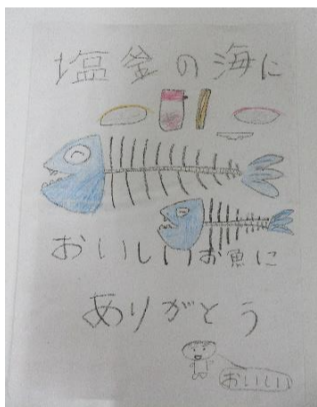 塩釜の海に
おいしいお魚に
ありがとう
おいしい